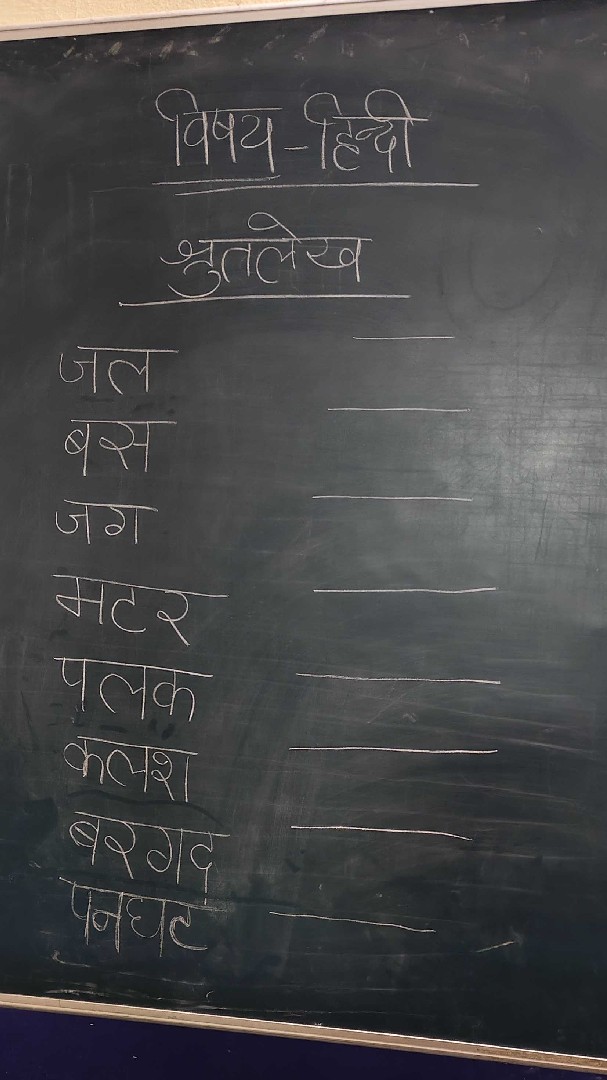 विषय - हिन्दी
श्रुतलेख
जल
बस
जग
मटर
पलक
कलश
बरगद
पनघट